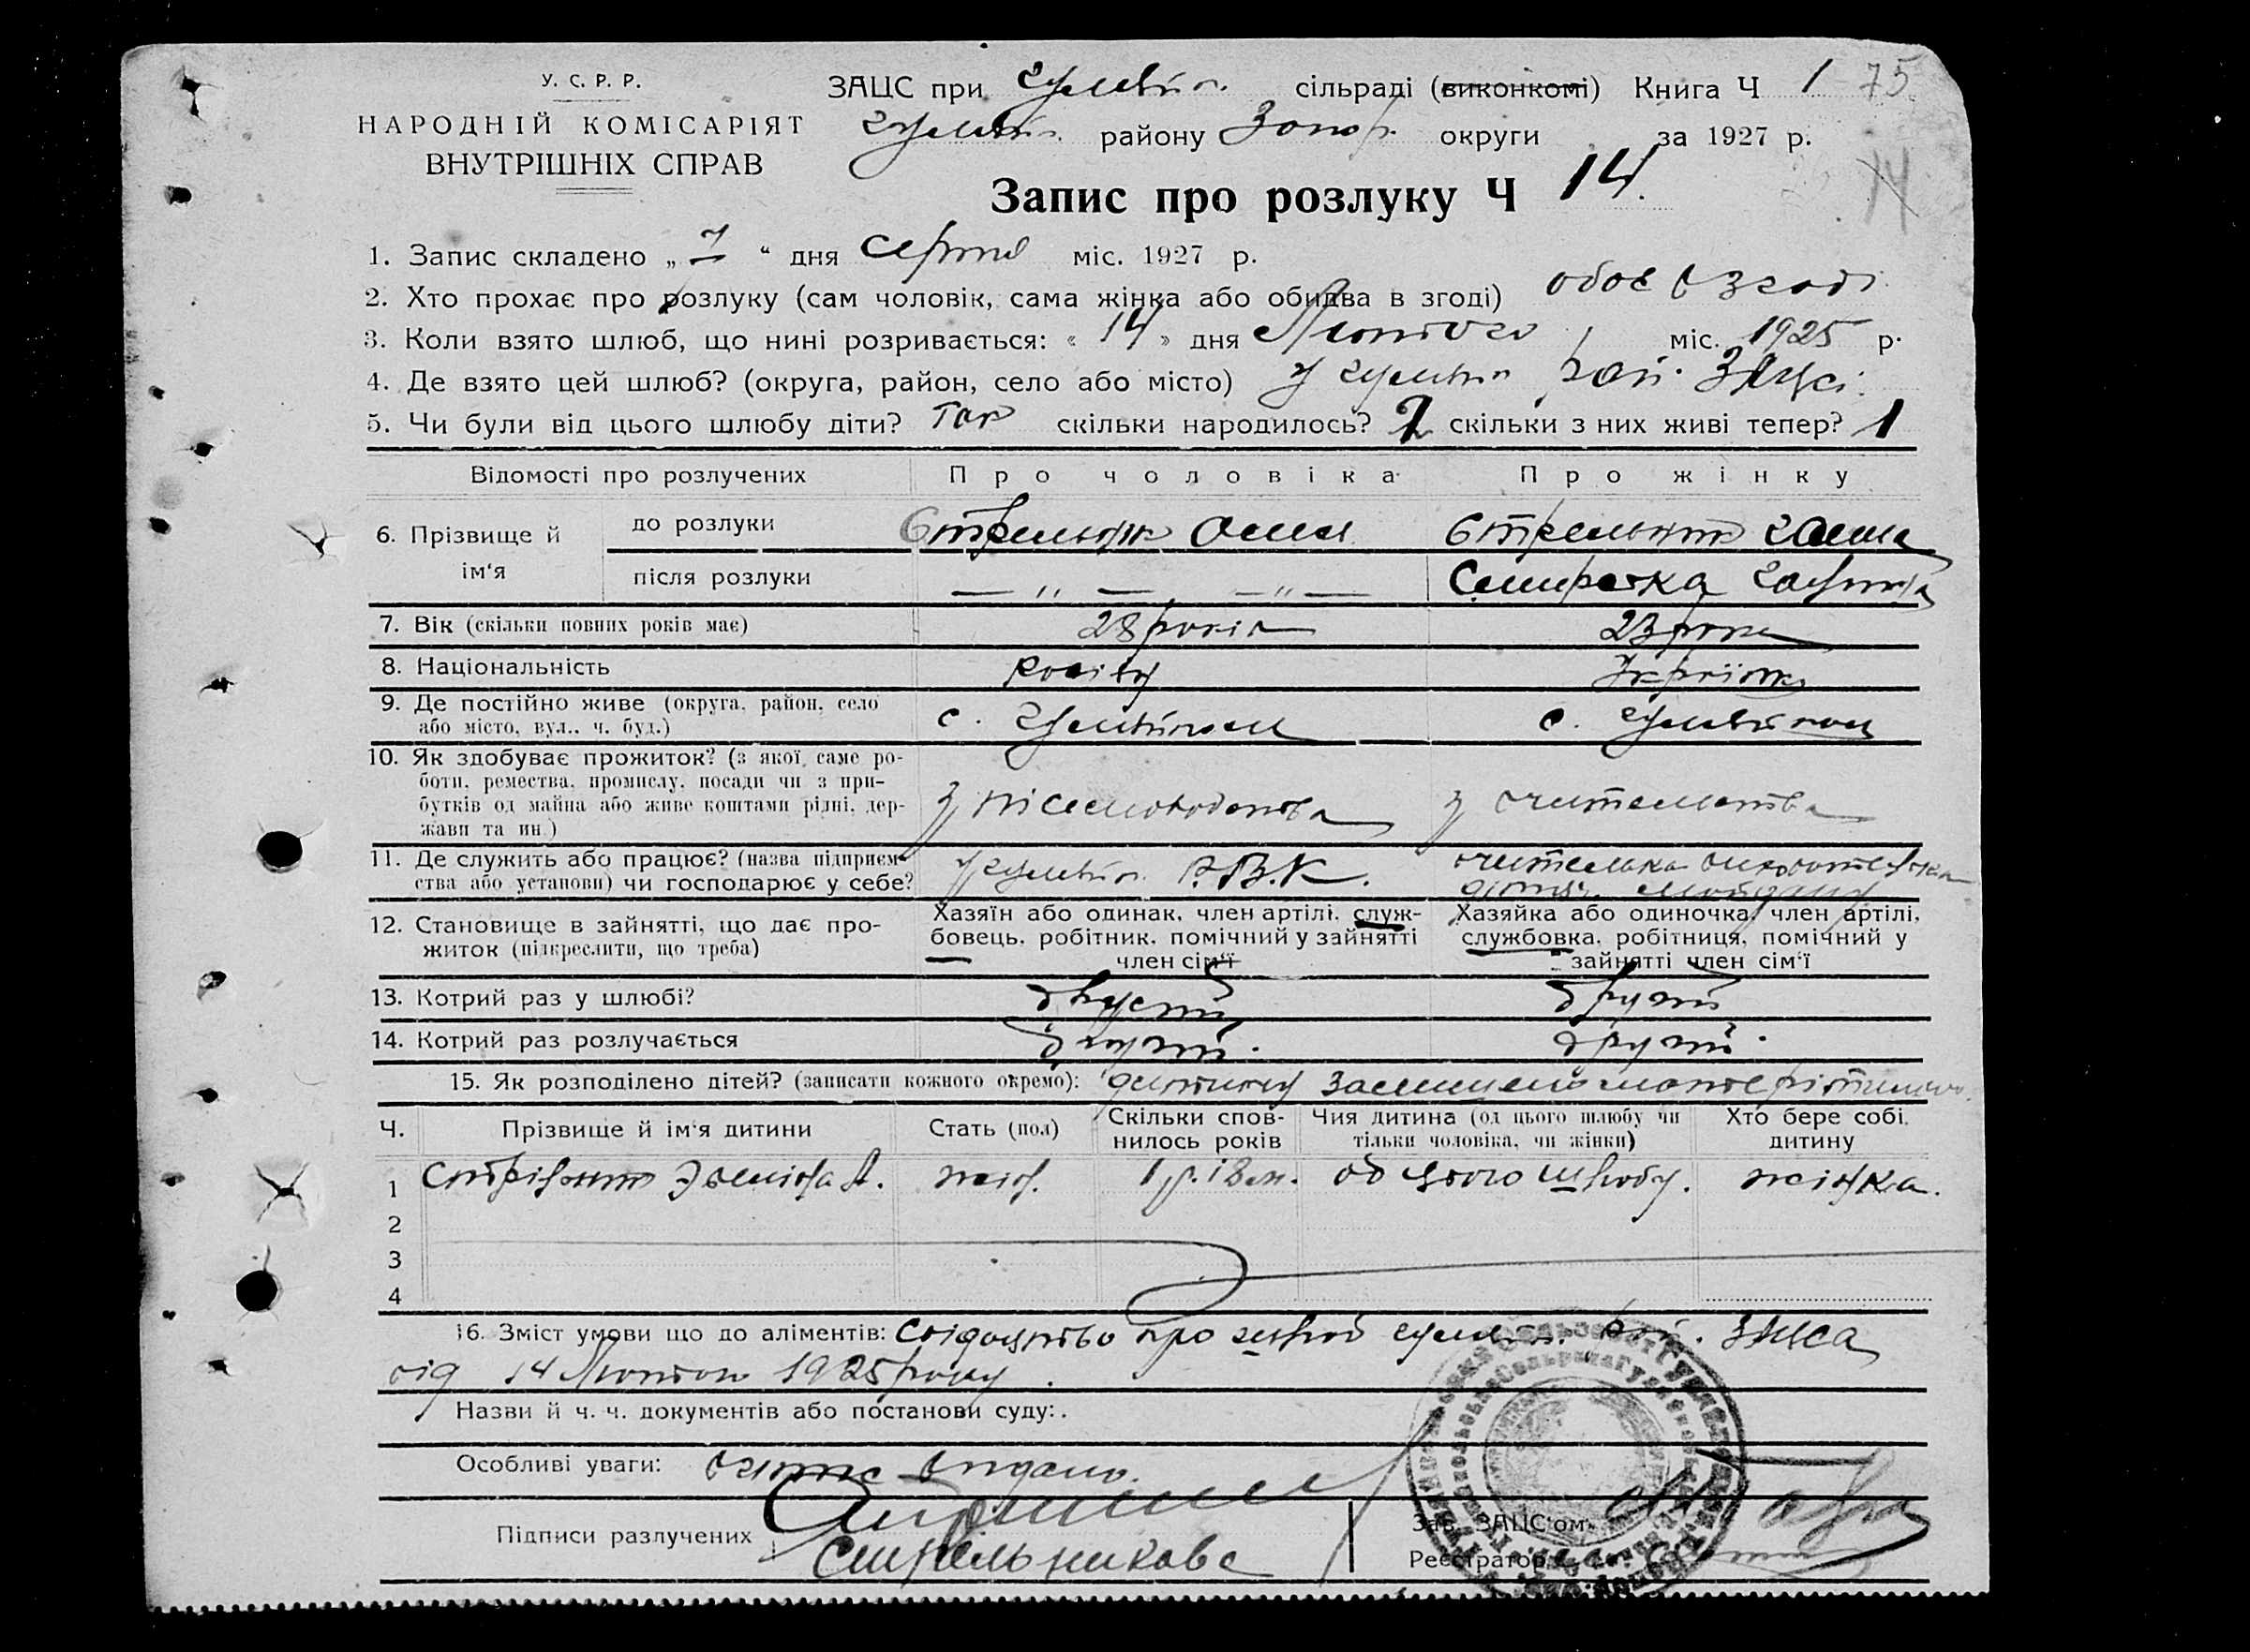 У. С. Р. Р.
НАРОДНІЙ КОМІСАРІЯТ
ВНУТРІШНІХ СПРАВ
ЗАЦС при Гуляйпіл. сільраді (виконкомі) Книга Ч 1 75
Гуляйп. району Запор. округи за 1927 р.
14
Запис про розлуку Ч 14.
1. Запис складено „ 7 “ дня серпня міс. 1927 р.
2. Хто прохає про розлуку (сам чоловік, сама жінка або обидва в згоді) обоє в згоді
3. Коли взято шлюб, що нині розривається: « 14 » дня Лютого міс. 1925 р.
4. Де взято цей шлюб? (округа, район, село або місто) У Гуляйп. рай. ЗАЦСі.
5. Чи були від цього шлюбу діти? так скільки народилось? 2 скільки з них живі тепер? 1
Відомості про розлучених Про чоловіка Про жінку
6. Прізвище й ім'я
до розлуки Стрельник Стрельник
після розлуки — „ — — „ —
7. Вік (скільки повних років має) 28 років 23 роки
8. Національність Українка
9. Де постійно живе (округа, район, село або місто, вул., ч. буд.) с. Гуляйполе с. Гуляйполе
10. Як здобуває прожиток? (з якої саме роботи, ремества, промислу, посади чи з прибутків од майна або живе коштами рідні, держави та ин.) з з учительства
11. Де служить або працює? (назва підприємства або установи) чи господарює у себе? У Гуляйпіл. Р.В.К. учителька
12. Становище в зайнятті, що дає прожиток (підкреслити, що треба)
Хазяїн або одинак, член артілі, службовець, робітник, помічний у зайнятті член сім'ї
Хазяйка або одиночка, член артілі, службовка, робітниця, помічний у зайнятті член сім'ї
13. Котрий раз у шлюбі? другий другий
14. Котрий раз розлучається другий. другий.
15. Як розподілено дітей? (записати кожного окремо): дитину залишено матері
Ч. Прізвище й ім'я дитини Стать (пол) Скільки сповнилось років Чия дитина (од цього шлюбу чи тільки чоловіка, чи жінки) Хто бере собі дитину
1 А. жін. 1 р. і 8 м. од цього шлюбу. жінка.
2
3
4
16. Зміст умови що до аліментів: Свідоцтво про шлюб Гуляйп. рай. ЗАЦСа
від 14 Лютого 1925 року.
Назви й ч. ч. документів або постанови суду:.
Особливі уваги: видано.
Підписи разлучених
Стрельникова
Зав. ЗАЦС'ом
Реєстратор